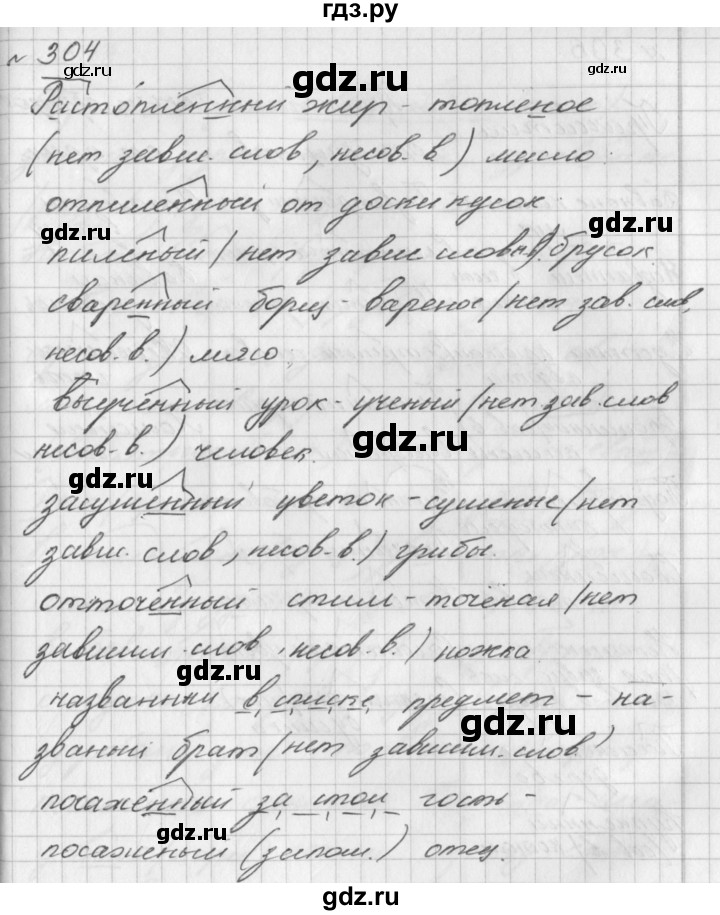 гдз.ру
№ 304
gdz.ru
Растопленный жир - топленое
(нет завис. слов, несов. в.) масло.
отпиленный от доски кусок
gdz.ru
gdz.ru
пиленый (нет завис слов) брусок
сваренный борщ - вареное (нет зав. слов,
gdz.ru
несов. в.) мясо.
gdz.ru
выученный урок - ученый (нет зав. слов
несов. в.) человек.
gdz.ru
gdz.ru
засушенный цветок - сушеные (нет
завис. слов, несов. в.) грибы.
gdz.ru
отточенный стиль - точёная (нет
зависим. слов, несов. в.) ножка
gdz.ru
названный в списке предмет - на-
gdz.ru
званный брат (нет зависим. слов)
посаженный за стол гость -
gdz.ru
посаженый (запом.) отец.
gdz.ru
gdz.ru